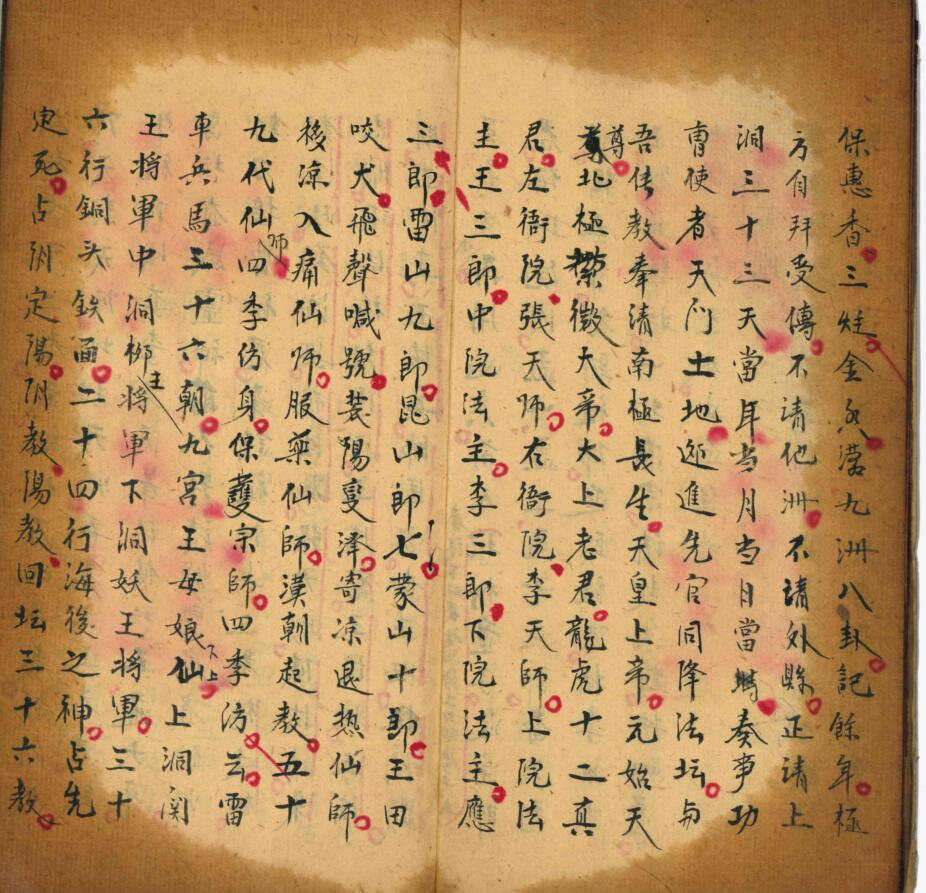 保惠香三炷金九洲八卦記餘年極
方自拜受傳不請他洲不請外縣正請上
洞三十三天當年当月当日當時奏事功
曹使者天门土地迎進先官同降法坛与
吾传教奉清南極長生天皇上帝元始天
尊北極紫微大帝大上老君龍虎十二真
君左衙院張天师右衙院李天師上院法
主王三郎中院法主李三郎下院法主應
三郎雷山九郎昆山郎七蒙山十郎王田
咬犬飛聲喊號裝陽寄凉退热仙師
梭凉入痛仙师服藥仙師漢朝起教五十
九代仙师四季仿身保護宗師四季汸云雷
車兵馬三十六朝九宮王母娘仙上下洞
王將軍中洞柳主將軍下洞妖王將軍三十
六行銅头鉄面二十四行海後之神占先
定死占阴定陽阴教陽教回坛三十六教